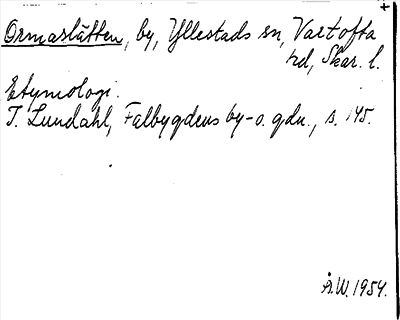 Ormaslätten, by, Yllestads sn, Vartofta
hd, Skar. l.
Etymologi.
I. Lundahl, Falbygdens by-o. gdn., s. 145.
Å.W. 1954.